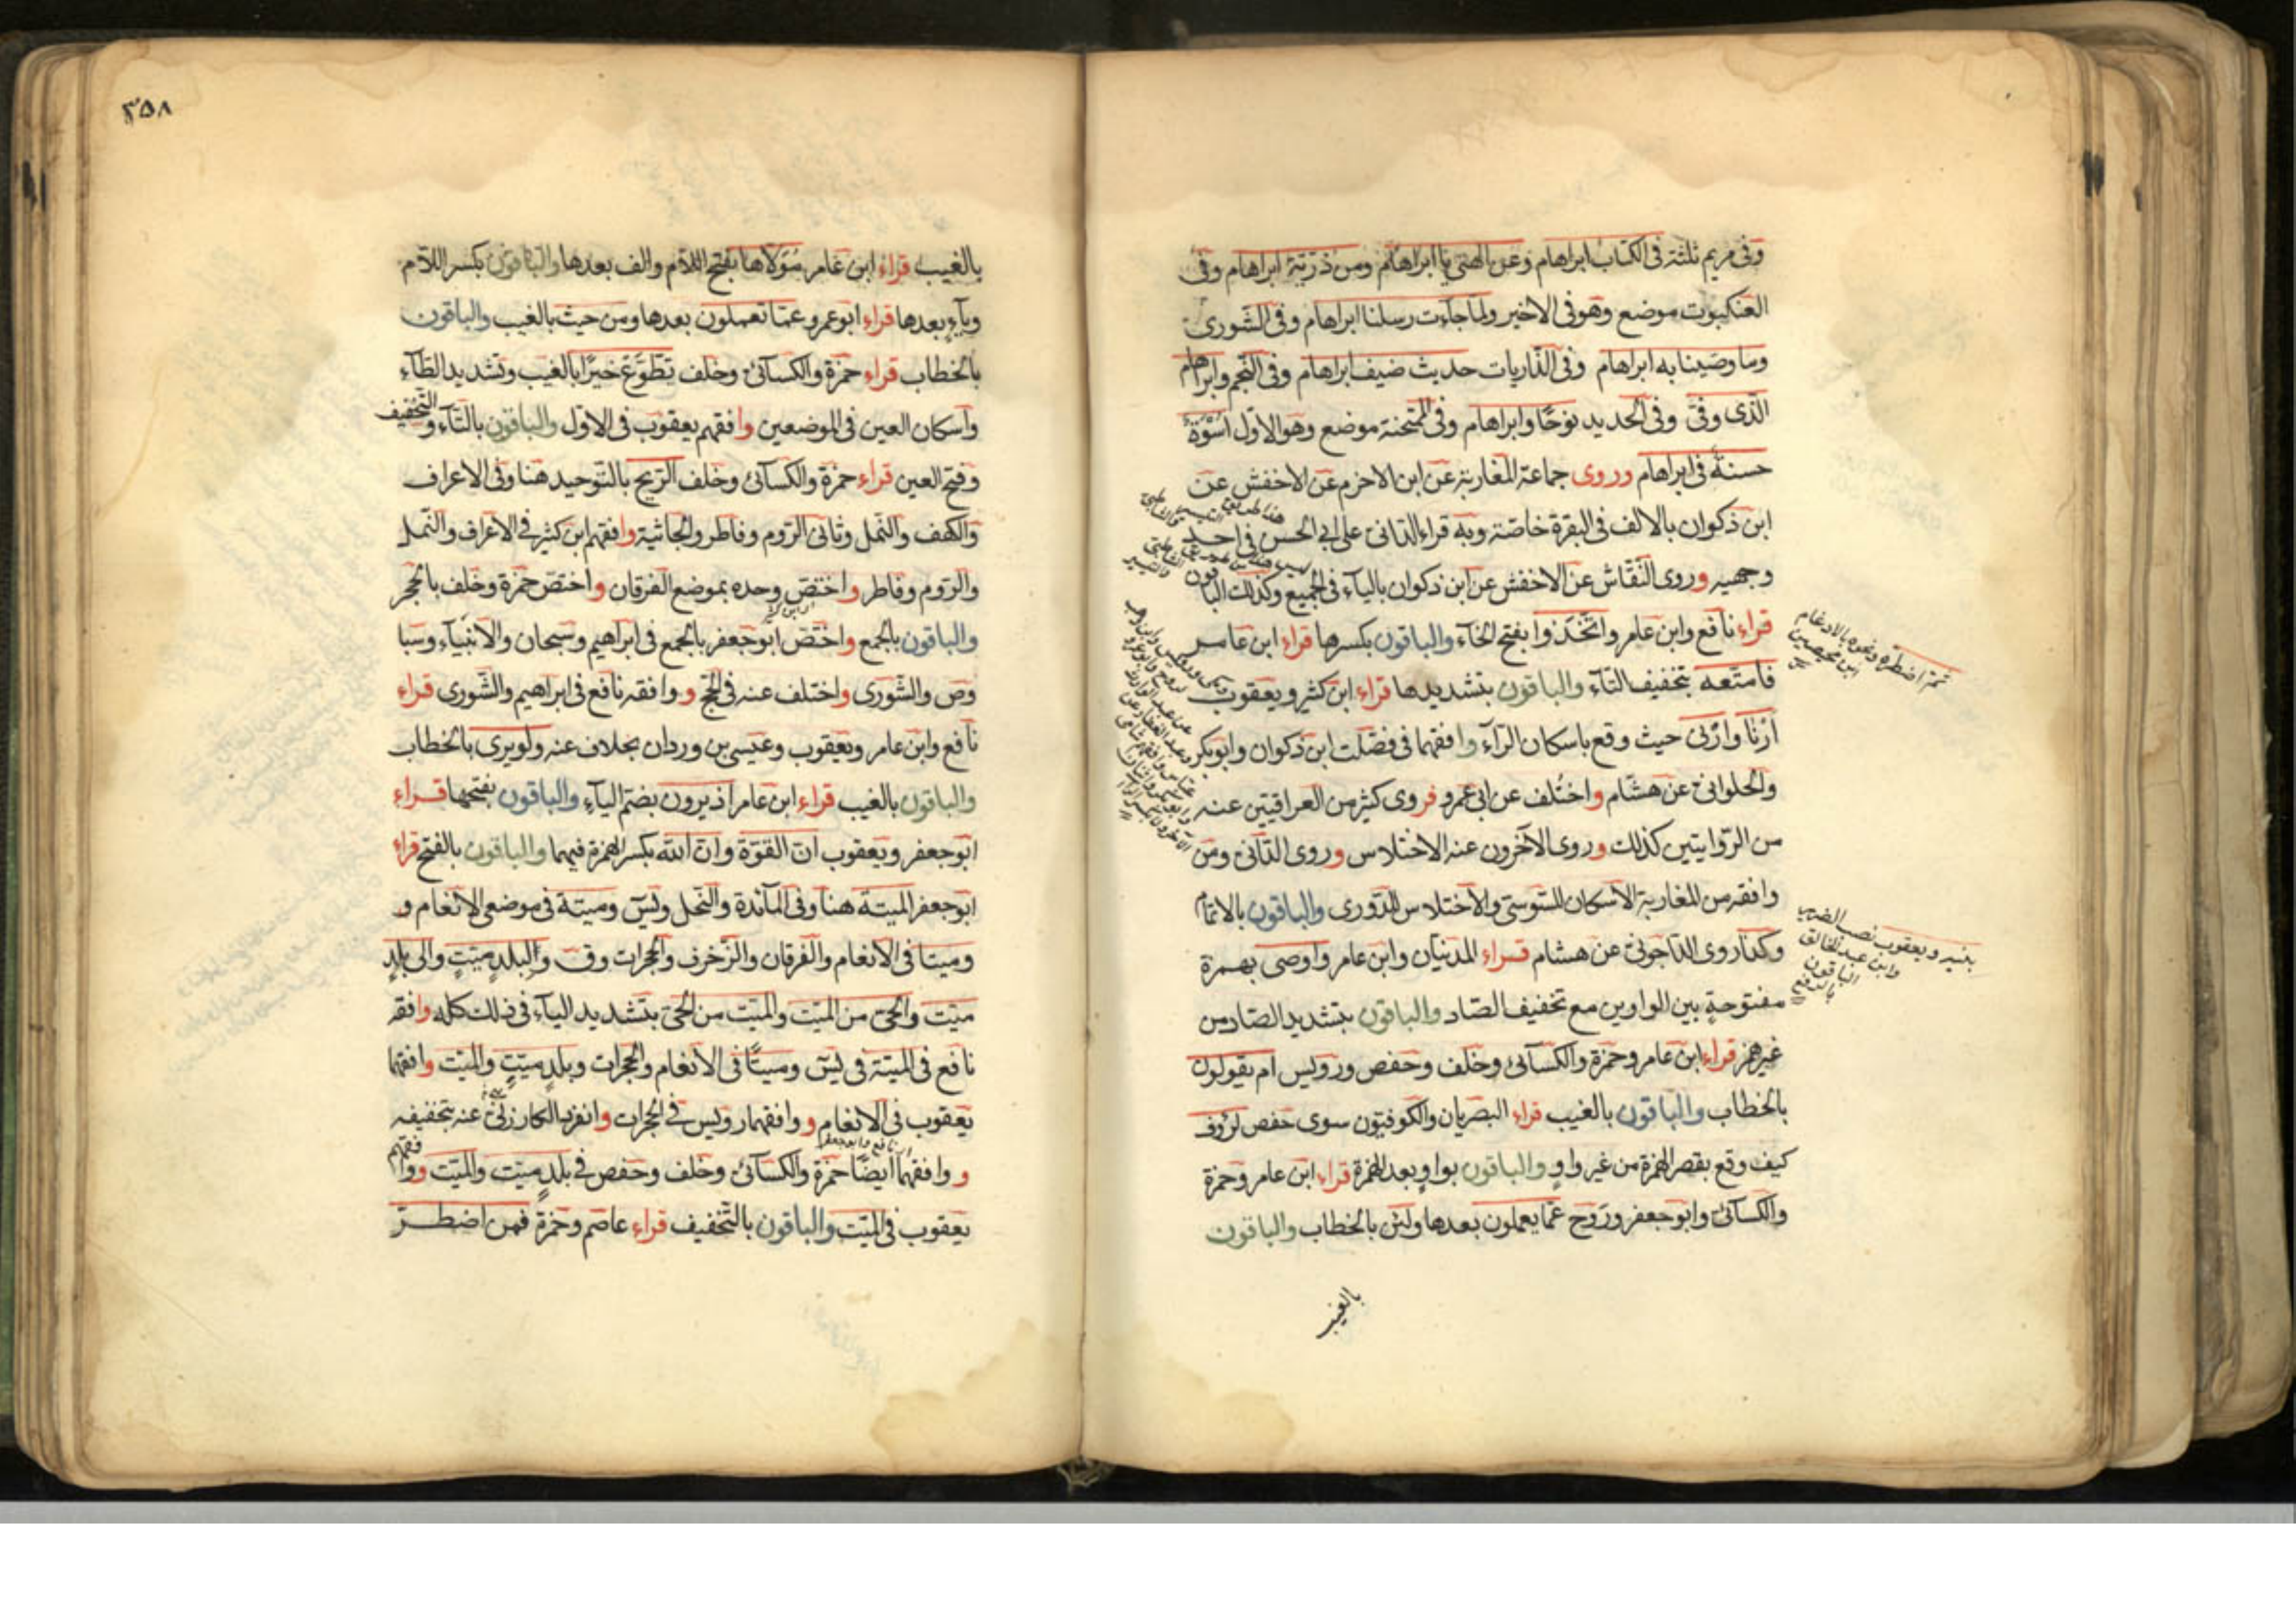 وفى مريم ثلثة فى الكتاب ابراهام وعن الهتى يا ابراهام ومن ذرّيّة ابراهام وفى
العنكبوت موضع وهو فى الاخير ولما جاءت رسلنا ابراهام وفى الشورى
وما وصّينا به ابراهام وفى الذّاريات حديث ضيف ابراهام وفى النّجم وابراهام
الّذى وفّى وفى الحديد نوحًا وابراهام وفى الممتحنة موضع وهو الاوّل اُسْوَةٌ
حسنةٌ فى ابراهام وروى جماعة المغاربة عن ابن الاخرم عن الاخفش عن
ابن ذكوان بالالف فى البقرة خاصّة وبه قراء الدّانى على ابى الحسن فى احد
وجهيه وروى النّقّاش عن الاخفش عن ابن ذكوان بالياء فى الجميع وكذلك الباقون
قراء نافع وابن عامر واتّخذوا بفتح الخاء والباقون بكسرها قراء ابن عامر
فامتعه بتخفيف التاء والباقون بتشديدها قراء ابن كثير ويعقوب
اَرْنا واَرْنى حيث وقع باسكان الرّاء وافقهما فى فصّلت ابن ذكوان وابوبكر
والحلوانى عن هشام واختُلف عن ابى عمرو فروى كثير من العراقيّين عنه
من الرّوايتين كذلك وروى الآخرون عنه الاختلاس وروى الدّانى ومن
وافقه من المغاربة الاسكان للسّوسىّ والاختلاس للدّورى والباقون بالاتمام
وكذا روى الدّاجونى عن هشام قراء المدنيّان وابن عامر واوصى بهمزة
مفتوحةٍ بين الواوين مع تخفيف الصّاد والباقون بتشديد الصّاد من
غير همز قراء ابن عامر وحمزة والكسائى وخلف وحفص ورويس ام يقولون
بالخطاب والباقون بالغيب قراء البصريان والكوفيّون سوى حفص لرؤف
كيف وقع بقصر الهمزة من غير واوٍ والباقون بواوٍ بعد الهمزة قراء ابن عامر وحمزة
والكسائى وابوجعفر ورَوح عمّا يعملون بعدها ولئن بالخطاب والباقون
بالغيب
ثمّ اضطرّه ونحوه بالادغام
ابن محيصن
بنيه ويعقوب نصب الضرير
وابن عبد الخالق
الباقون
بالرفع
٣٥٨
بالغيب قراء ابن عامر مُوَلّاها بفتح اللّام والف بعدها والباقون بكسر اللّام
وياءٍ بعدها قراء ابوعمرو عمّا تعملون بعدها ومن حيث بالغيب والباقون
بالخطاب قراء حمزة والكسائى وخلف يطّوّع خيرًا بالغيب وتشديد الطّاء
واسكان العين فى الموضعين وافقهم يعقوب فى الاوّل والباقون بالتّاء والتخفيف
وفتح العين قراء حمزة والكسائى وخلف الرّيح بالتّوحيد هنا وفى الاعراف
والكهف والنّمل وثانى الرّوم وفاطر والجاثية وافقهم ابن كثير فى الاعراف والنّمل
والرّوم وفاطر واختصّ وحده بموضع الفرقان واختصّ حمزة وخلف بالحجر
والباقون بالجمع واختصّ ابوجعفر بالجمع فى ابراهيم وسبحان والانبياء وسبا
وص والشّورى واختلف عنه فى الحجّ ووافقه نافع فى ابراهيم والشّورى قراء
نافع وابن عامر ويعقوب وعيسى بن وردان بخلاف عنه ولو يرى بالخطاب
والباقون بالغيب قراء ابن عامر اذ يرون بضمّ الياء والباقون بفتحها قراء
ابوجعفر ويعقوب انّ القوّة وانّ الله بكسر الهمزة فيهما والباقون بالفتح قراء
ابوجعفر الميتة هنا وفى المائدة والنّحل ويٰسٓ وميتة فى موضعى الانعام و
وميتا فى الانعام والفرقان والزّخرف والحجرات وقٓ والبلدٍ ميّتٍ والى بلدٍ
ميّت والحىّ من الميّت والميّت من الحىّ بتشديد الياء فى ذلك كله وافقه
نافع فى الميتة فى يٰسٓ وميتًا فى الانعام والحجرات وبلدٍ ميّتٍ والميّت وافقهما
يعقوب فى الانعام ووافقهما رويس فى الحجرات وانفرد الكارزينى عنه بتخفيفه
ووافقهما ايضًا حمزة والكسائى وخلف وحفص فى بلدٍ ميّت والميّت ووافقهم
يعقوب فى الميّت والباقون بالتّخفيف قراء عاصم وحمزة فمن اضطرّ